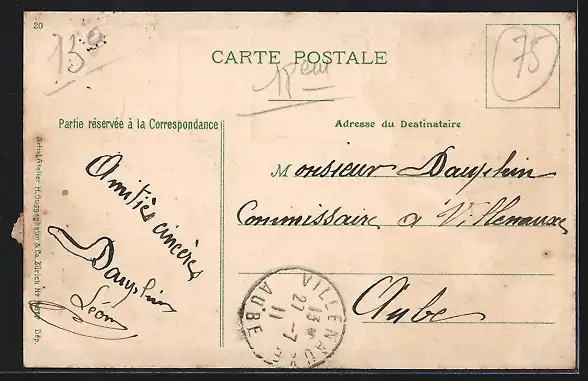 20
13e
CARTE POSTALE
15 em
75
Partie réservée à la Correspondance
Adresse du Destinataire
Amitiés sincères
Dauphin
Léon
Monsieur Dauphin
Commissaire à Villenauxe
Aube
VILLENAUX
13
27-7
11
AUBE
Artist. Atelier H. Guggenheim & Co. Zürich Nr Dép.